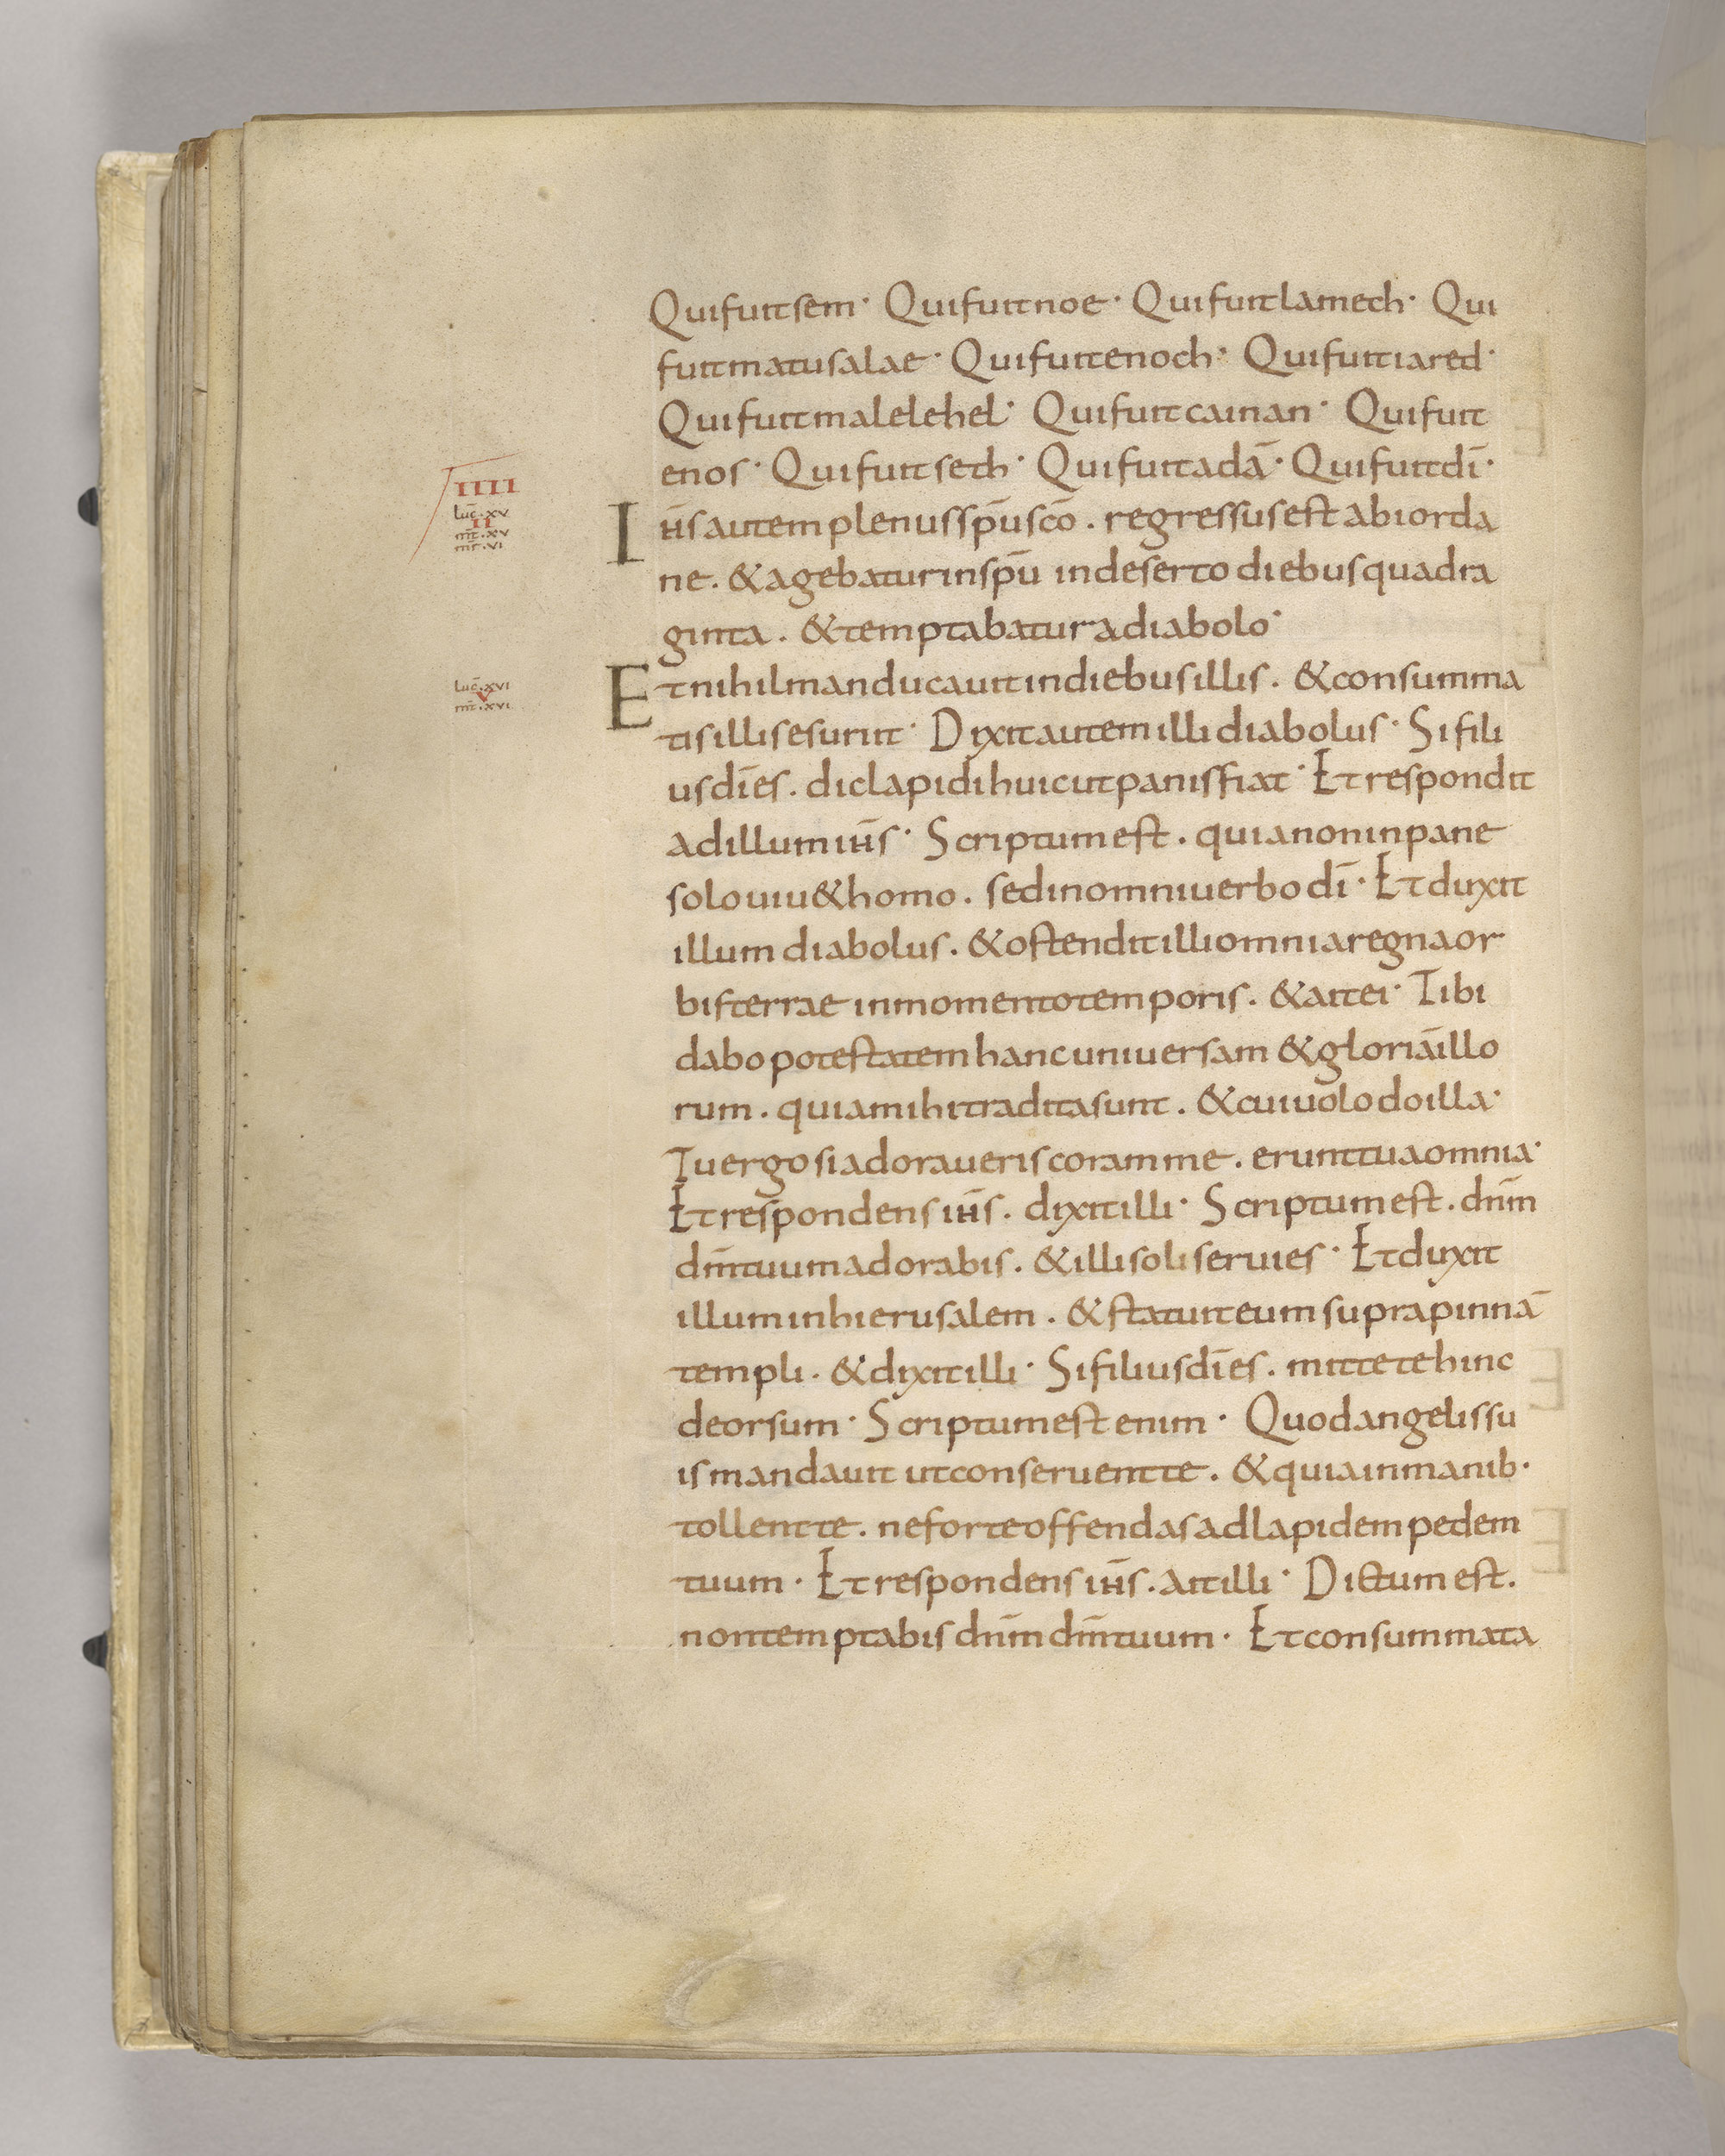 Qui fuit sem· Qui fuit noe· Qui fuit lamech· Qui
fuit matusalae· Qui fuit enoch· Qui fuit iared·
Qui fuit malelehel· Qui fuit cainan· Qui fuit
enos· Qui fuit seth· Qui fuit adā· Qui fuit dī·
IIII
luc̄·xv
II
mt̄·xv
mr̄·vi
Iħs autem plenus sp̄u scō. regressus est ab iorda
ne. & agebatur in sp̄u in deserto diebus quadra
ginta. & temptabatur a diabolo·
luc̄·xvi
V
mt̄·xvi
Et nihil manducauit in diebus illis. & consumma
tis illis esuriit· Dixit autem illi diabolus· Si fili
us dī es. dic lapidi huic ut panis fiat· Et respondit
ad illum iħs· Scriptum est. quia non in pane
solo uiu& homo. sed in omni uerbo dī· Et duxit
illum diabolus. & ostendit illi omnia regna or
bis terrae in momento temporis. & ait ei· Tibi
dabo potestatem hanc uniuersam & gloriā illo
rum. quia mihi tradita sunt. & cui uolo do illa·
Tu ergo si adoraueris coram me. erunt tua omnia·
Et respondens iħs. dixit illi· Scriptum est. dn̄m
dm̄ tuum adorabis. & illi soli seruies· Et duxit
illum in hierusalem. & statuit eum supra pinnā
templi. & dixit illi· Si filius dī es. mitte te hinc
deorsum· Scriptum est enim· Quod angelis su
is mandauit ut conseruent te. & quia in manib·
tollent te. ne forte offendas ad lapidem pedem
tuum· Et respondens iħs. ait illi· Dictum est.
non temptabis dn̄m dm̄ tuum· Et consummata